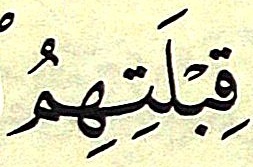 قِبْلَتِهِمُ